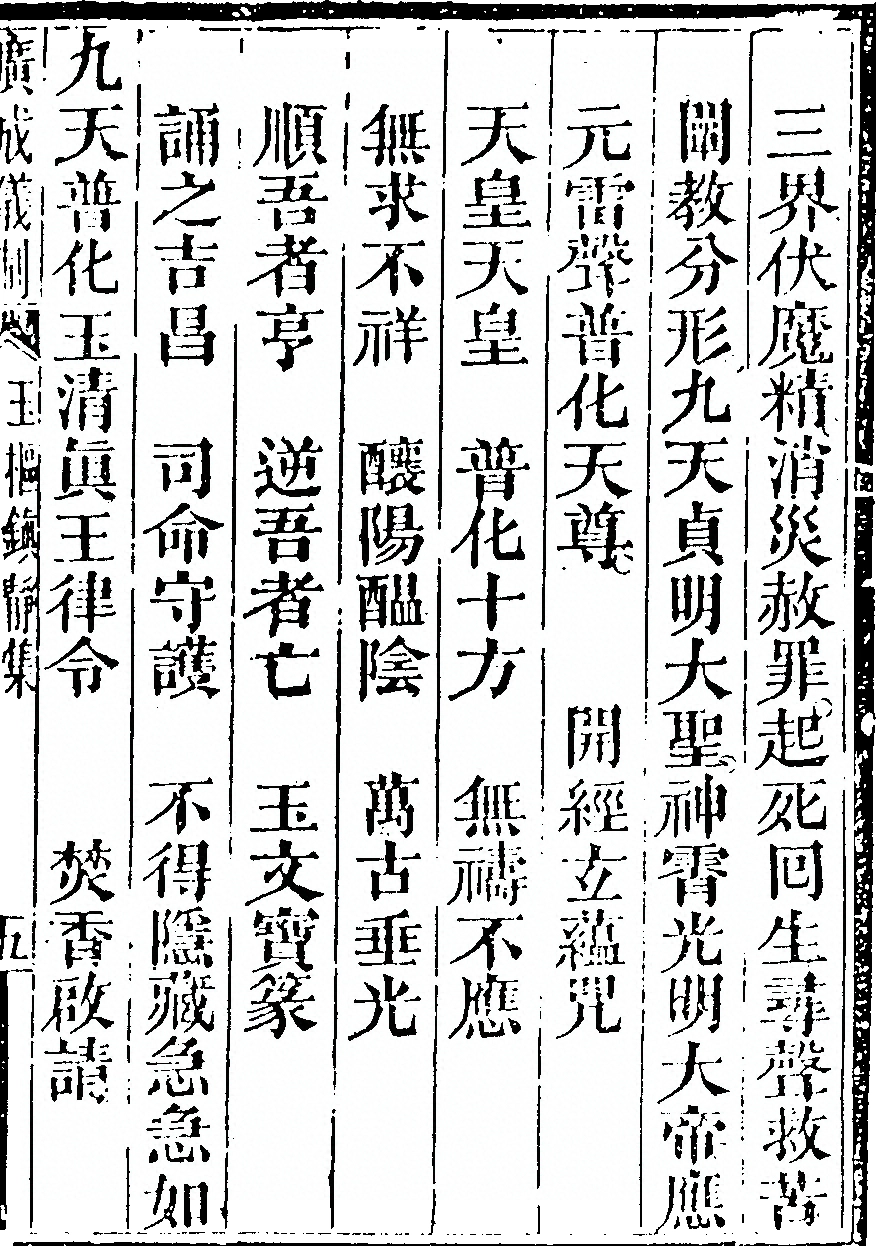 三界伏魔精消災赦罪起死回生尋聲救苦
闡教分形九天貞明大聖神霄光明大帝應
元雷聲普化天尊　　開經立蘊咒
天皇天皇　普化十方　無禱不應
無求不祥　釀陽醖陰　萬古垂光
順吾者亨　逆吾者亡　玉文寶篆
誦之吉昌　司命守護　不得隱藏急急如
九天普化玉清眞王律令　　焚香啟請
廣成儀制　玉樞鎮靜集　五